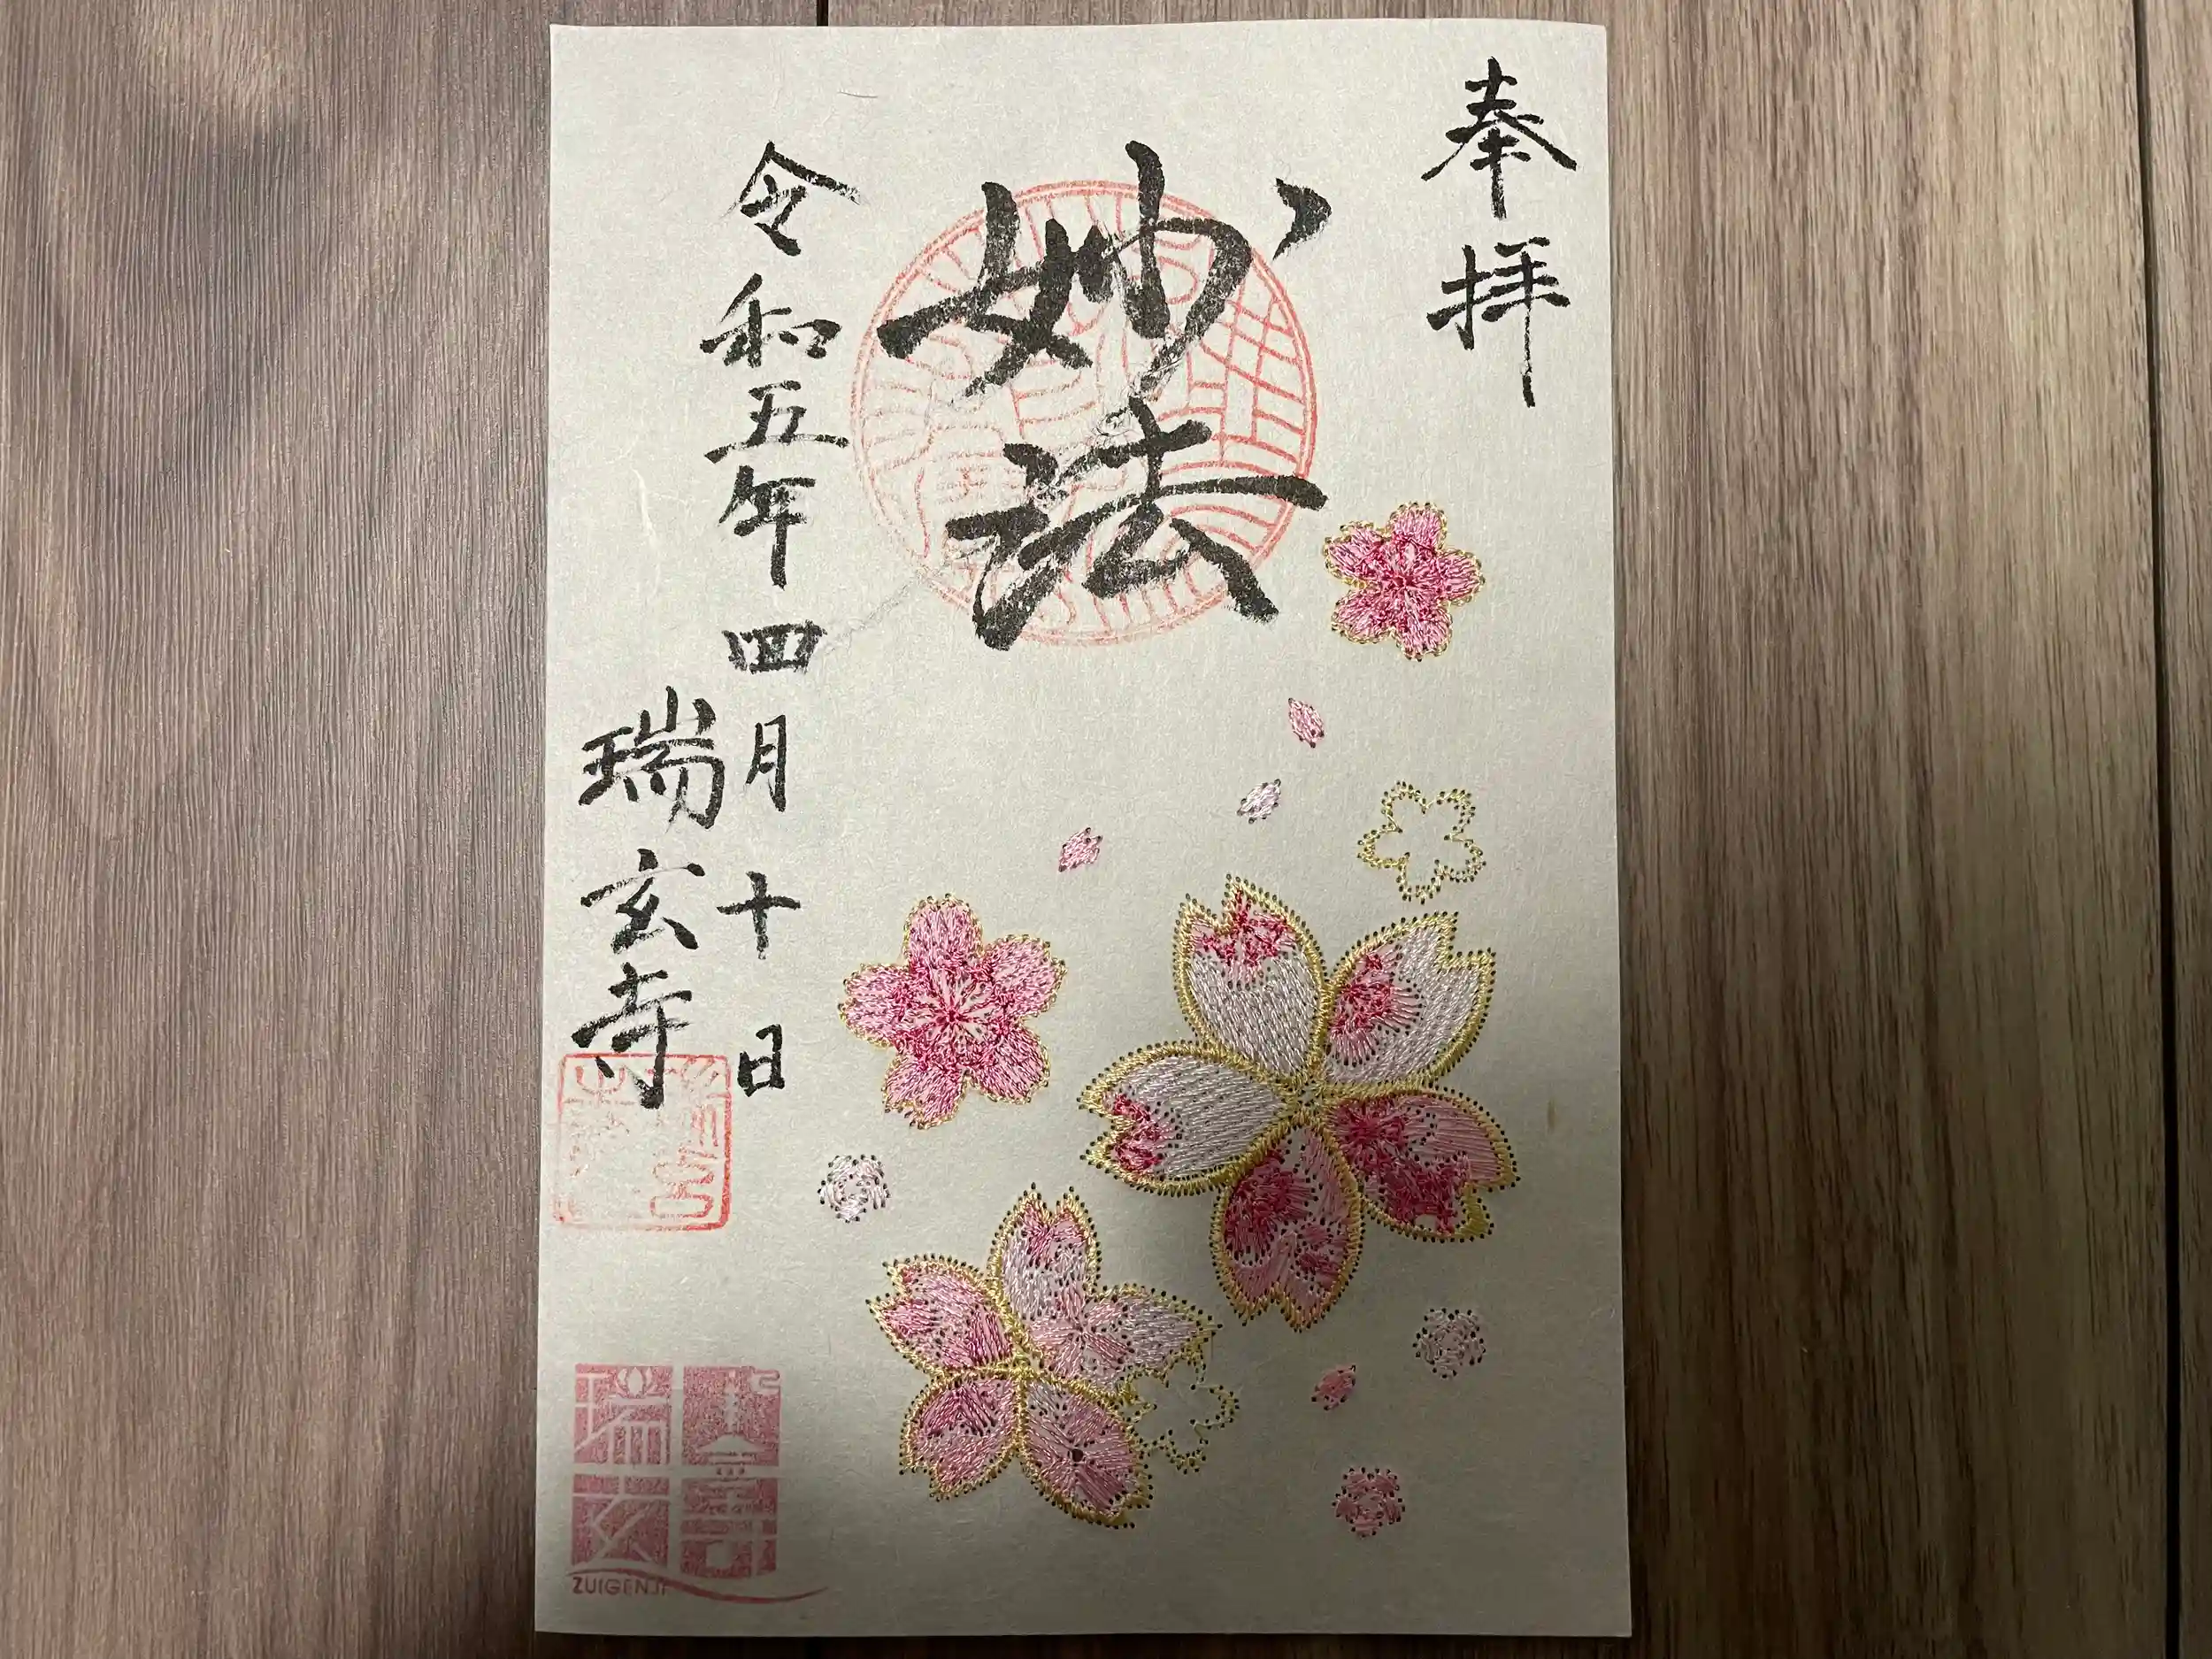 奉拝
妙法
令和五年四月十日
瑞玄寺
瑞玄寺
ZUIGENJI